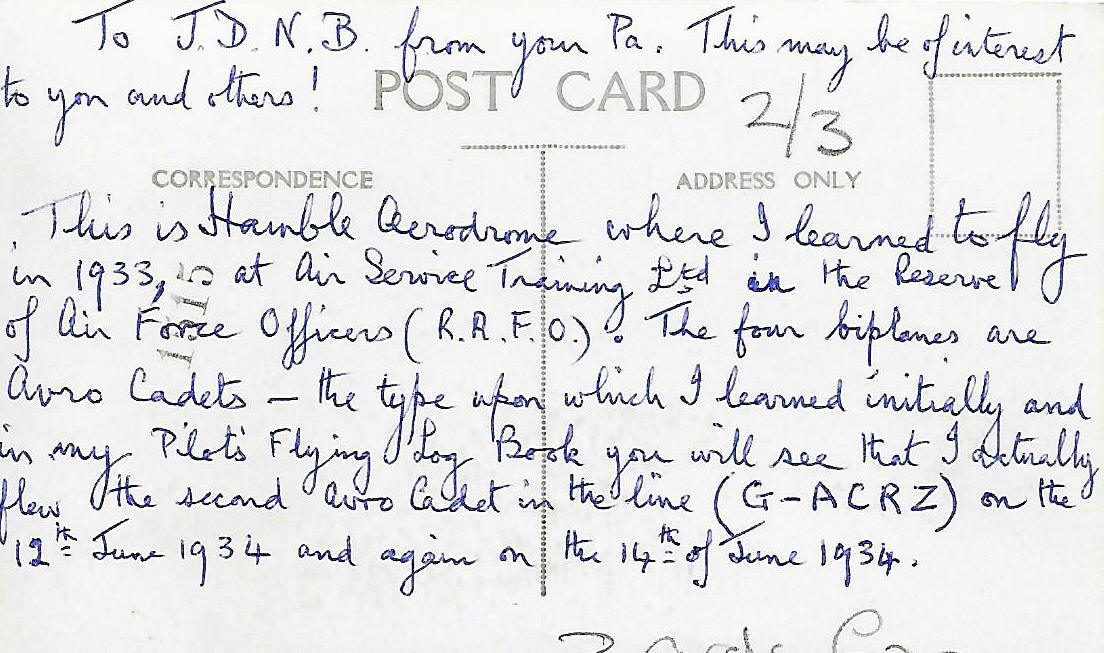 To J.D.N.B. from your Pa. This may be of interest
to you and others!
POST CARD
2/3
CORRESPONDENCE
ADDRESS ONLY
This is Hamble Aerodrome where I learned to fly
in 1933, at Air Service Training Ltd in the Reserve
of Air Force Officers (R.A.F.O.). The four biplanes are
Avro Cadets – the type upon which I learned initially and
in my Pilot's Flying Log Book you will see that I actually
flew the second Avro Cadet in the line (G-ACRZ) on the
12th June 1934 and again on the 14th of June 1934.